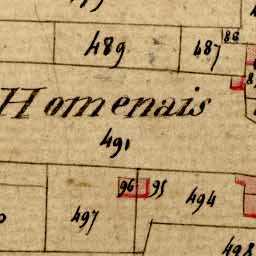 489 487 88
Homenais
491
96 95 494
497
498